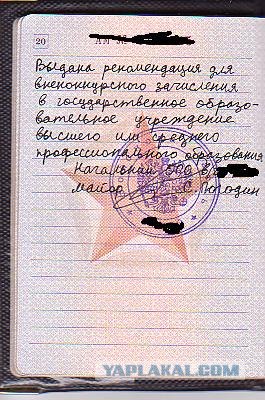 20
Выдана рекомендация для
внеконкурсного зачисления
в государственное образо-
вательное учреждение
высшего или среднего
профессионального образования
Начальник
майор С. Погодин
YAPLAKAL.COM